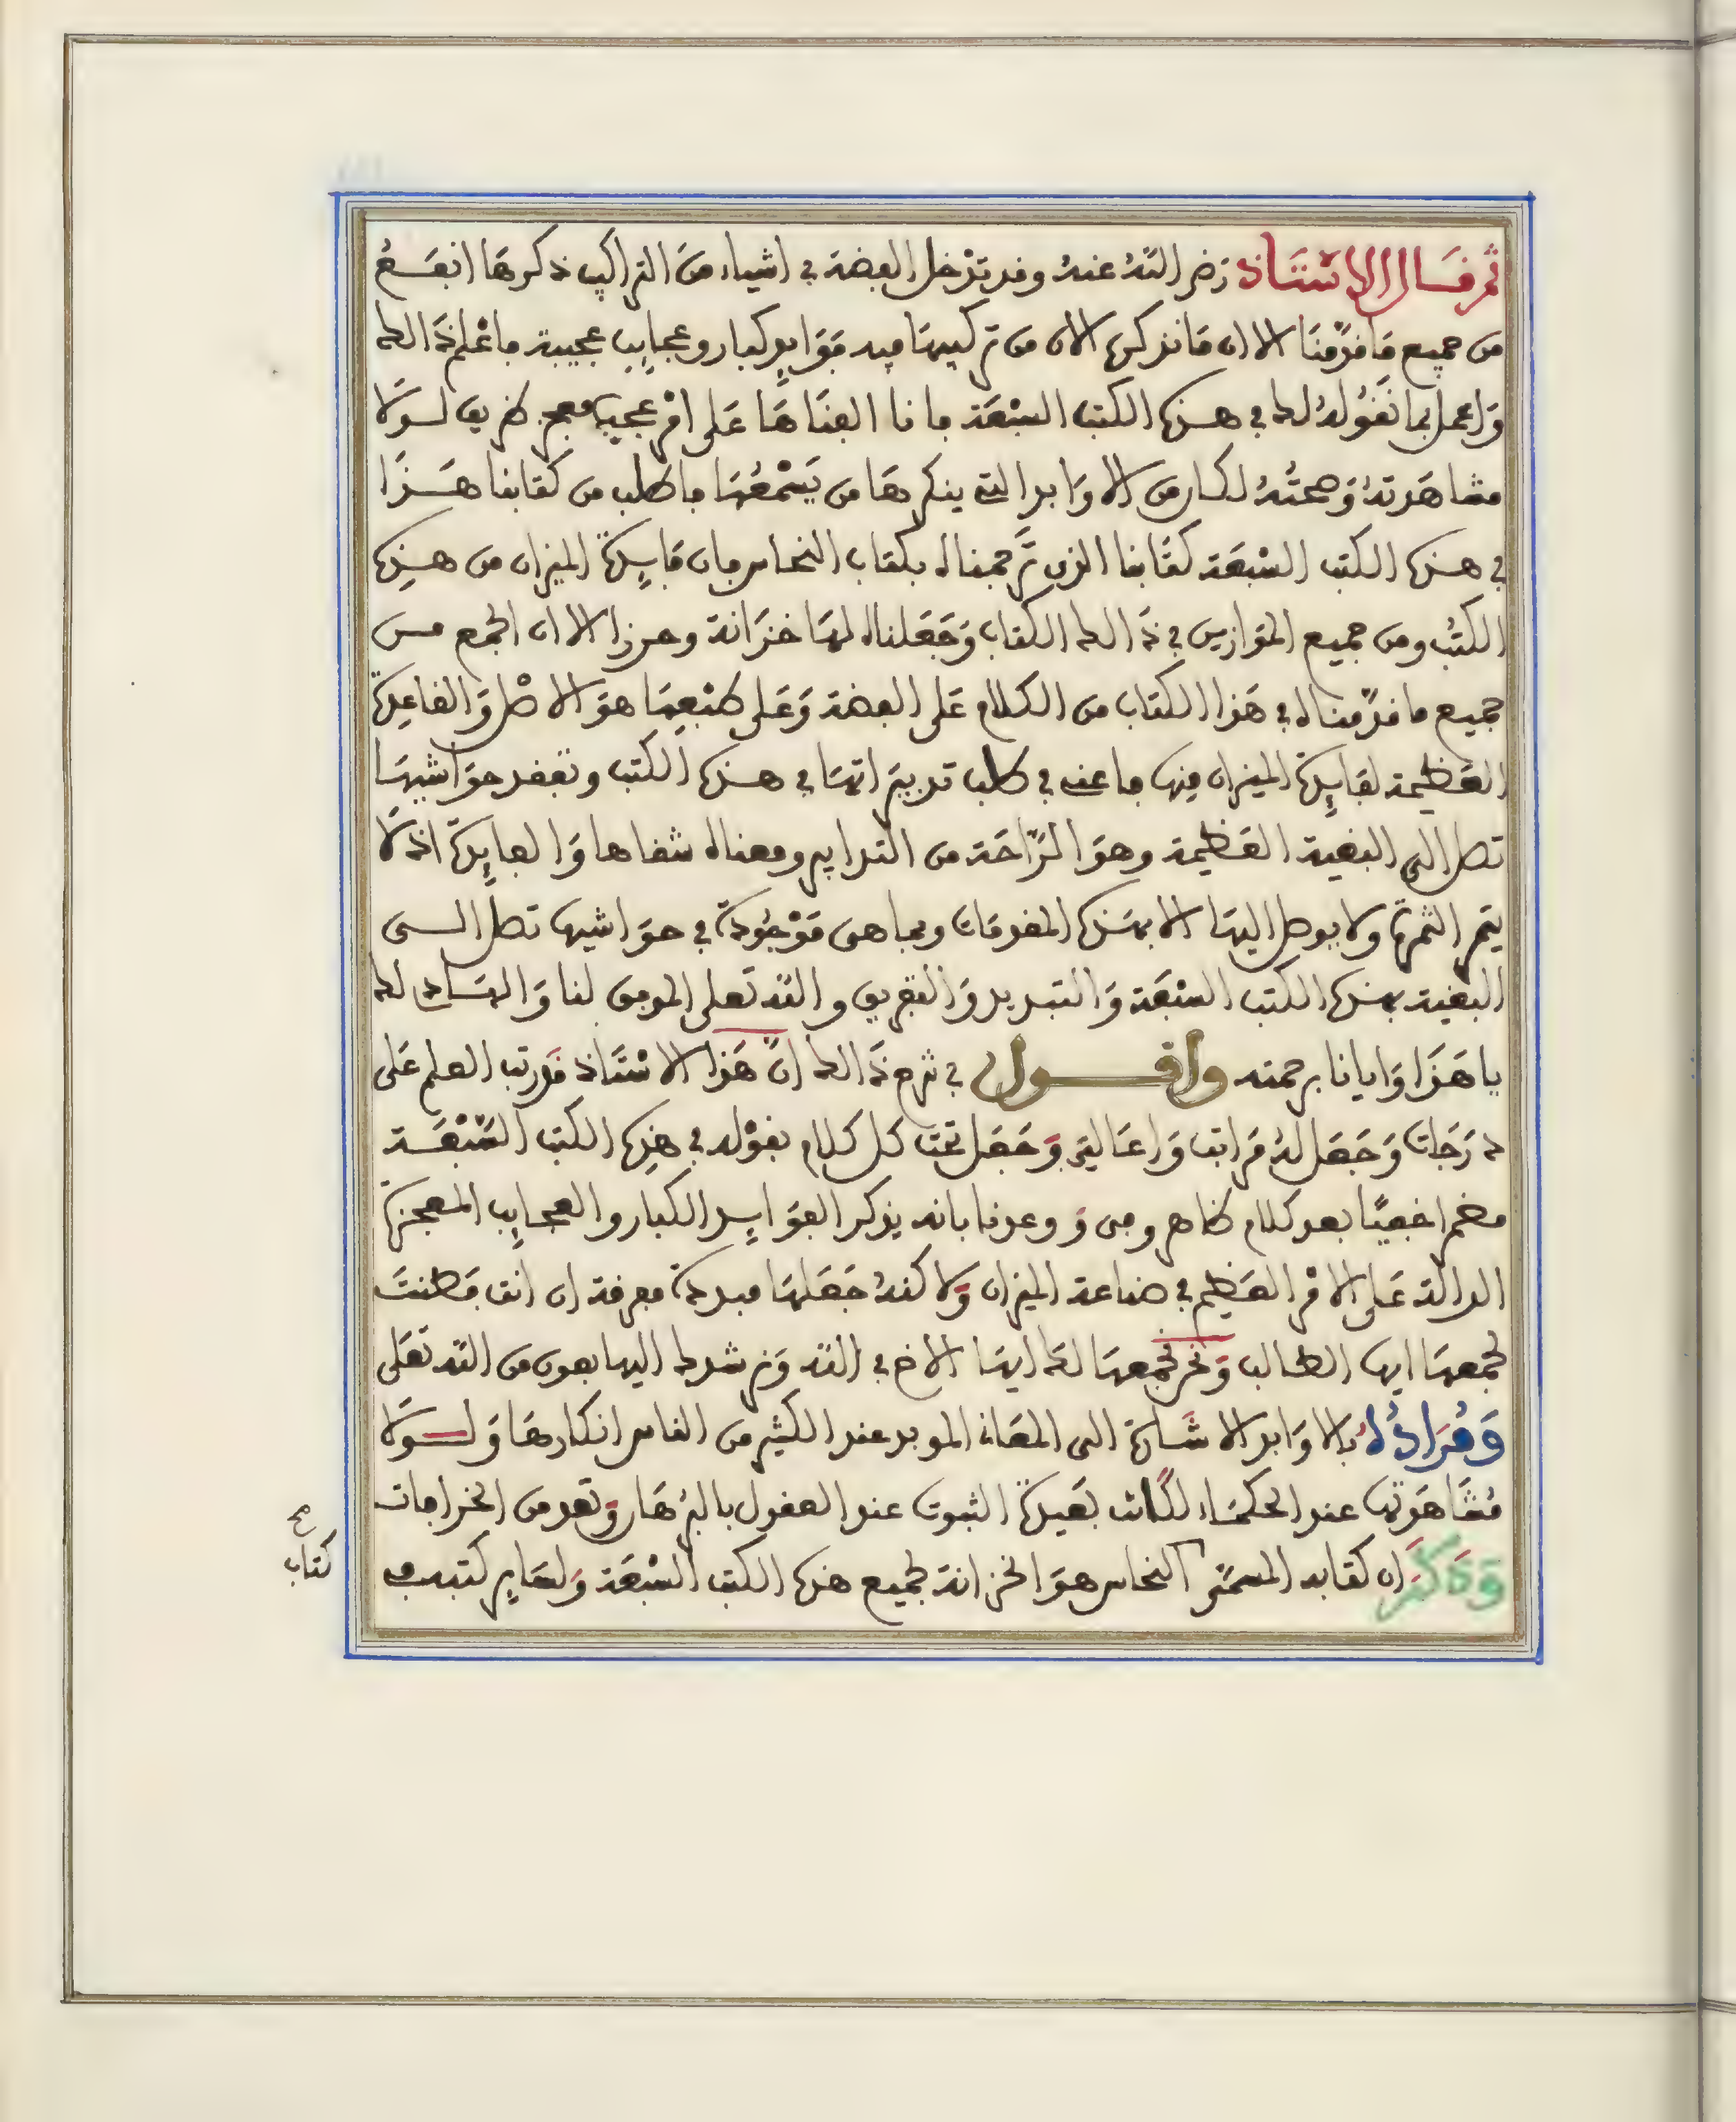 ثم قال الاستاذ رضي الله عنه وقد تدخل الفضة في اشياء من التراكيب ذكرها انفع
من جميع ما قدمنا الا ان ما نذكره الان من تركيبها فيه فوايد كبار وعجايب عجيبة فاعلم ذالك
واعمل بما نقوله لك في هذه الكتب السبعة فانا الفناها على امر عجيب معجز طريف لولا
مشاهدته وصحته لكان من الاوابد التي ينكرها من يسمعها فاطلب من كتابنا هذا
في هذه الكتب السبعة كتابنا الذي ترجمناه بكتاب النحاس فان فايدة الميزان من هذه
الكتب ومن جميع الموازين في ذالك الكتاب وجعلناه لها خزانة وحرزا لان الجمع من
جميع ما قدمناه في هذا الكتاب من الكلام على الفضة وعلى طبعها هو الاصل والقاعدة
العظيمة لفايدة الميزان منها فاعنه في طلب تدبيراتها في هذه الكتب وتفقد حواشيها
تصل الى البغية العظيمة وهو الراحة من التدابير ومعناه شفاها والفايدة اذ لا
يتم الثمرة ولا يوصل اليها الا بهذه المقدمات وبما هي موجودة في حواشيها تصل الى
البغية بهذه الكتب السبعة والتبديد والتفريق والله تعلى الموفق لنا والهاد لك
يا هذا وايانا برحمته واقول في شرح ذالك ان هذا الاستاذ قد رتب العلم على
درجات وجعل له مراتب واعالي وجعل تحت كل كلام يقوله في هذه الكتب السبعة
مضمرا خفيا بعد كلام ظاهر ومن و وعدنا بانه يذكر الفوايد الكبار والعجايب المعجزة
الدالة على الامر العظيم في صناعة الميزان ولاكنه جعلها مبددة معرفة ان انت فطنت
لجمعها ايها الطالب ونحن نجمعها لك ايها الاخ في الله ونرشدك اليها بعون من الله تعلى
ومراده بالاوابد الاشارة الى المعاني الموبد عند الكثير من الناس انكارها ولولا
مشاهدتها عند الحكماء لكانت بعيدة الثبوت عند العقول بالبرهان وتعد من الخرافات
وذكر ان كتابه المسمى النحاس هو الخزانة لجميع هذه الكتب السبعة ولساير كتبه في
صح
كتاب